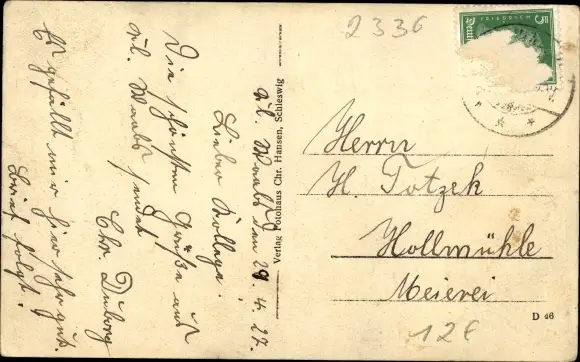 2336
FRIEDRICH
5
Herrn
H. Totzek
Hollmühle
Meierei
128
D 46
Verlag Fotohaus Chr. Hansen, Schleswig
den 29.4.27.
Lieber Kollege.
Die schönsten Grüße aus
sendet
Chr. Duborg
Es gefällt mir hier sehr gut.
Brief folgt.